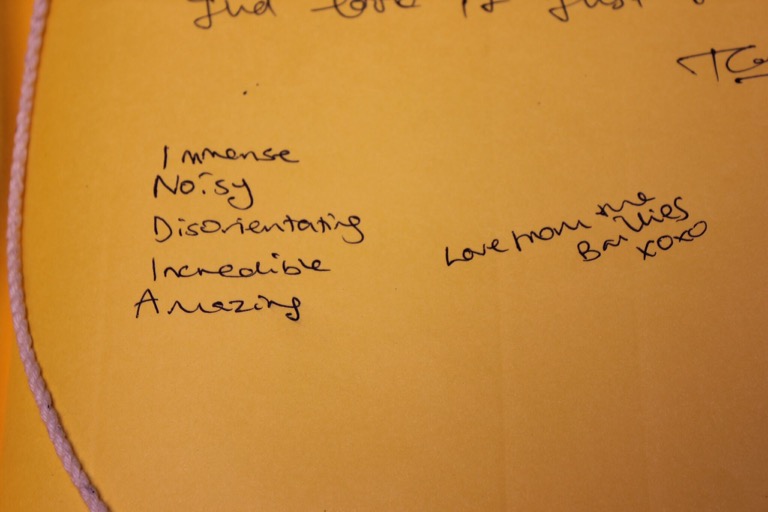 love is just
Immense
Noisy
Disorientating
Incredible
Amazing
Love from the
Baillies
xoxo